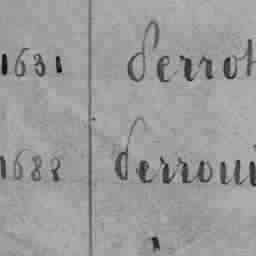 1631 Perrot
1688 Perroui